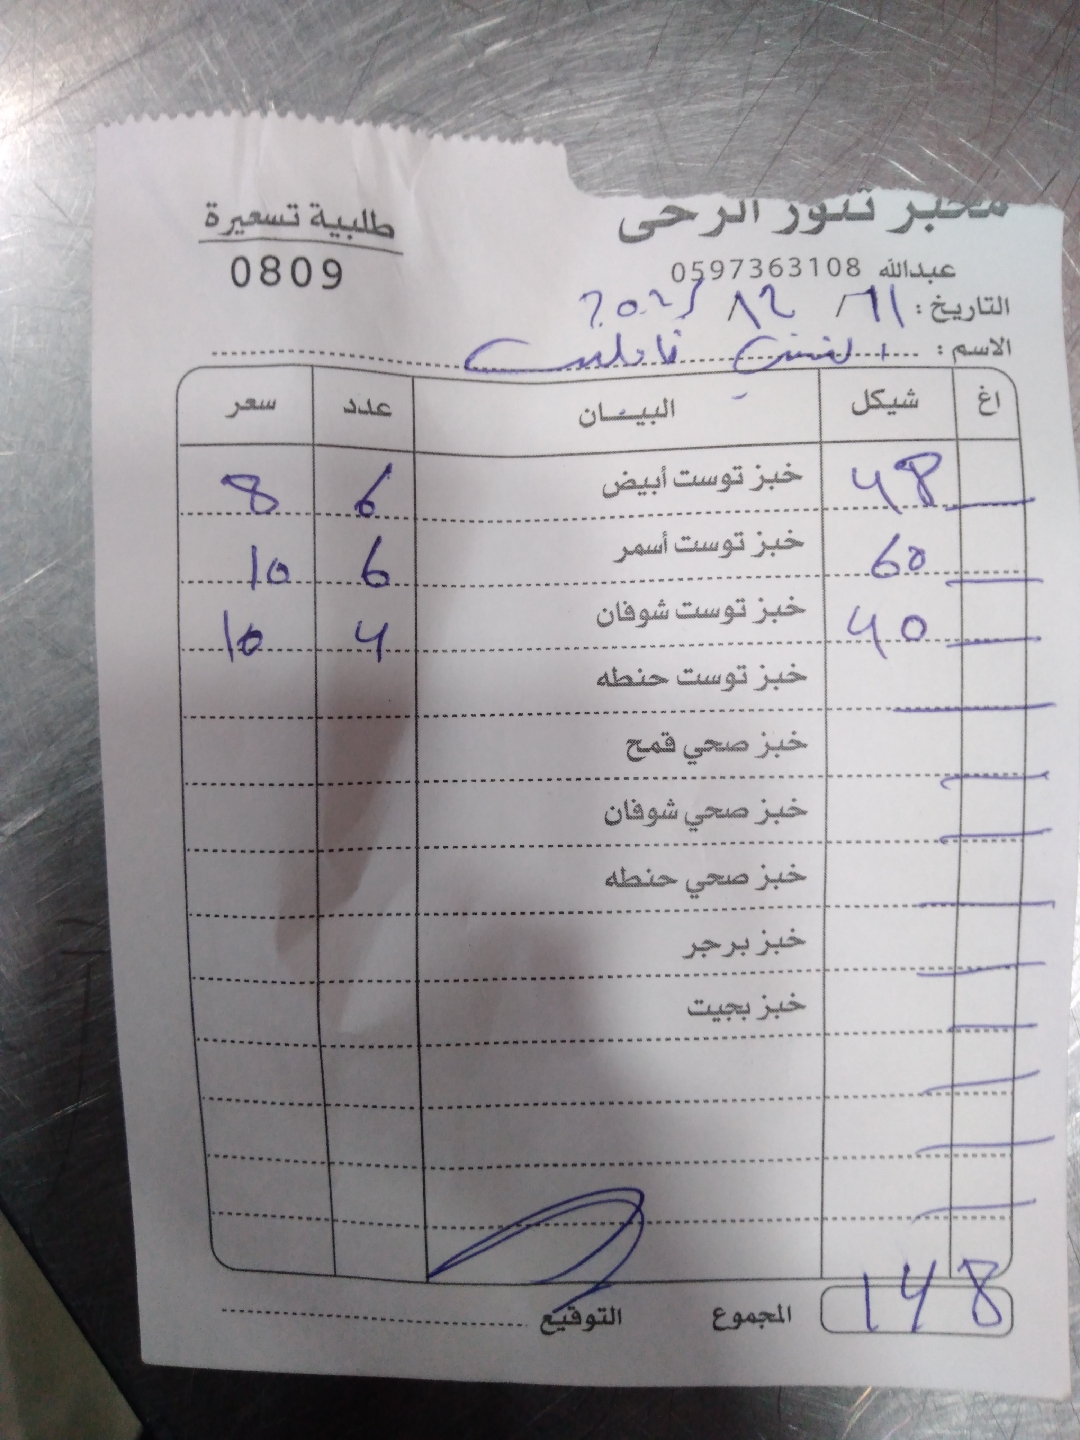 مخبز تنور الرحى
طلبية تسعيرة
عبدالله 0597363108
0809
التاريخ :
الاسم :
اغ شيكل البيـــان عدد سعر
48 خبز توست أبيض 6 8
60 خبز توست أسمر 6 10
40 خبز توست شوفان 4 10
خبز توست حنطه
خبز صحي قمح
خبز صحي شوفان
خبز صحي حنطه
خبز برجر
خبز بجيت
148 المجموع التوقيع